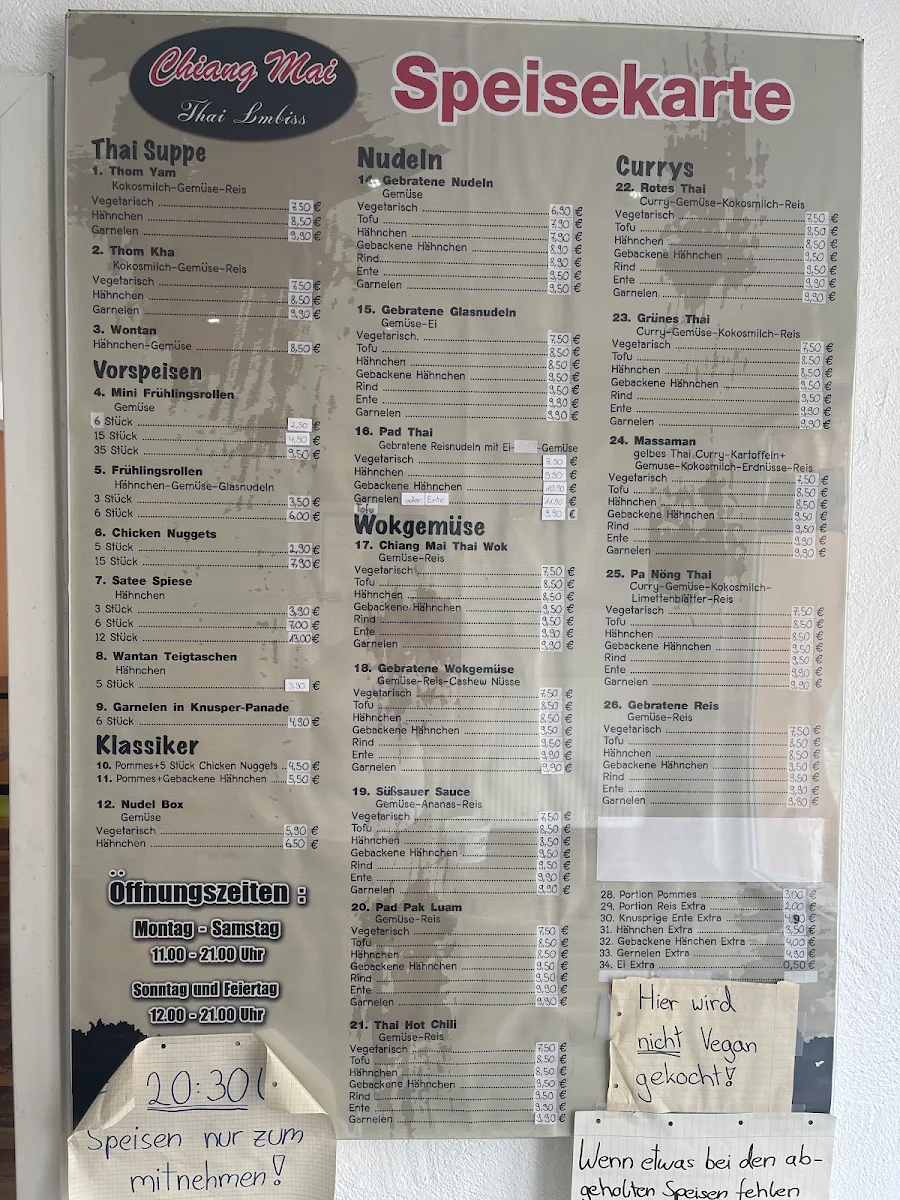 Chiang Mai
Thai Imbiss
Speisekarte
Thai Suppe
1. Thom Yam
Kokosmilch-Gemüse-Reis
Vegetarisch 7,50 €
Hähnchen 8,50 €
Garnelen 9,90 €
2. Thom Kha
Kokosmilch-Gemüse-Reis
Vegetarisch 7,50 €
Hähnchen 8,50 €
Garnelen 9,90 €
3. Wontan
Hähnchen-Gemüse 8,50 €
Vorspeisen
4. Mini Frühlingsrollen
Gemüse
6 Stück 2,50 €
15 Stück 4,90 €
35 Stück 9,50 €
5. Frühlingsrollen
Hähnchen-Gemüse-Glasnudeln
3 Stück 3,50 €
6 Stück 6,00 €
6. Chicken Nuggets
5 Stück 2,90 €
15 Stück 7,90 €
7. Satee Spiese
Hähnchen
3 Stück 3,90 €
6 Stück 7,00 €
12 Stück 13,00 €
8. Wantan Teigtaschen
Hähnchen
5 Stück 3,90 €
9. Garnelen in Knusper-Panade
6 Stück 4,90 €
Klassiker
10. Pommes+5 Stück Chicken Nuggets 4,50 €
11. Pommes+Gebackene Hähnchen 5,50 €
12. Nudel Box
Gemüse
Vegetarisch 5,90 €
Hähnchen 6,50 €
Öffnungszeiten :
Montag - Samstag
11.00 - 21.00 Uhr
Sonntag und Feiertag
12.00 - 21.00 Uhr
20:30
Speisen nur zum
mitnehmen!
Nudeln
14. Gebratene Nudeln
Gemüse
Vegetarisch 6,90 €
Tofu 7,90 €
Hähnchen 7,90 €
Gebackene Hähnchen 8,90 €
Rind 8,90 €
Ente 9,50 €
Garnelen 9,50 €
15. Gebratene Glasnudeln
Gemüse-Ei
Vegetarisch 7,50 €
Tofu 8,50 €
Hähnchen 8,50 €
Gebackene Hähnchen 9,50 €
Rind 9,50 €
Ente 9,90 €
Garnelen 9,90 €
16. Pad Thai
Gebratene Reisnudeln mit Ei- -Gemüse
Vegetarisch 8,90 €
Hähnchen 9,90 €
Gebackene Hähnchen 10,90 €
Garnelen oder Ente 11,90 €
Tofu 9,90 €
Wokgemüse
17. Chiang Mai Thai Wok
Gemüse-Reis
Vegetarisch 7,50 €
Tofu 8,50 €
Hähnchen 8,50 €
Gebackene Hähnchen 9,50 €
Rind 9,50 €
Ente 9,90 €
Garnelen 9,90 €
18. Gebratene Wokgemüse
Gemüse-Reis-Cashew Nüsse
Vegetarisch 7,50 €
Tofu 8,50 €
Hähnchen 8,50 €
Gebackene Hähnchen 9,50 €
Rind 9,50 €
Ente 9,90 €
Garnelen 9,90 €
19. Süßsauer Sauce
Gemüse-Ananas-Reis
Vegetarisch 7,50 €
Tofu 8,50 €
Hähnchen 8,50 €
Gebackene Hähnchen 9,50 €
Rind 9,50 €
Ente 9,90 €
Garnelen 9,90 €
20. Pad Pak Luam
Gemüse-Reis
Vegetarisch 7,50 €
Tofu 8,50 €
Hähnchen 8,50 €
Gebackene Hähnchen 9,50 €
Rind 9,50 €
Ente 9,90 €
Garnelen 9,90 €
21. Thai Hot Chili
Gemüse-Reis
Vegetarisch 7,50 €
Tofu 8,50 €
Hähnchen 8,50 €
Gebackene Hähnchen 9,50 €
Rind 9,50 €
Ente 9,90 €
Garnelen 9,90 €
Currys
22. Rotes Thai
Curry-Gemüse-Kokosmilch-Reis
Vegetarisch 7,50 €
Tofu 8,50 €
Hähnchen 8,50 €
Gebackene Hähnchen 9,50 €
Rind 9,50 €
Ente 9,90 €
Garnelen 9,90 €
23. Grünes Thai
Curry-Gemüse-Kokosmilch-Reis
Vegetarisch 7,50 €
Tofu 8,50 €
Hähnchen 8,50 €
Gebackene Hähnchen 9,50 €
Rind 9,50 €
Ente 9,90 €
Garnelen 9,90 €
24. Massaman
gelbes Thai Curry-Kartoffeln+
Gemuse-Kokosmilch-Erdnüsse-Reis
Vegetarisch 7,50 €
Tofu 8,50 €
Hähnchen 8,50 €
Gebackene Hähnchen 9,50 €
Rind 9,50 €
Ente 9,90 €
Garnelen 9,90 €
25. Pa Nöng Thai
Curry-Gemüse-Kokosmilch-
Limettenblätter-Reis
Vegetarisch 7,50 €
Tofu 8,50 €
Hähnchen 8,50 €
Gebackene Hähnchen 9,50 €
Rind 9,50 €
Ente 9,90 €
Garnelen 9,90 €
26. Gebratene Reis
Gemüse-Reis
Vegetarisch 7,50 €
Tofu 8,50 €
Hähnchen 8,50 €
Gebackene Hähnchen 9,50 €
Rind 9,50 €
Ente 9,90 €
Garnelen 9,90 €
28. Portion Pommes 3,00 €
29. Portion Reis Extra 2,00 €
30. Knusprige Ente Extra €
31. Hähnchen Extra 3,50 €
32. Gebackene Hänchen Extra 4,00 €
33. Gernelen Extra 4,90 €
34. Ei Extra 0,50 €
Hier wird
nicht Vegan
gekocht!
Wenn etwas bei den ab-
geholten Speisen fehlen